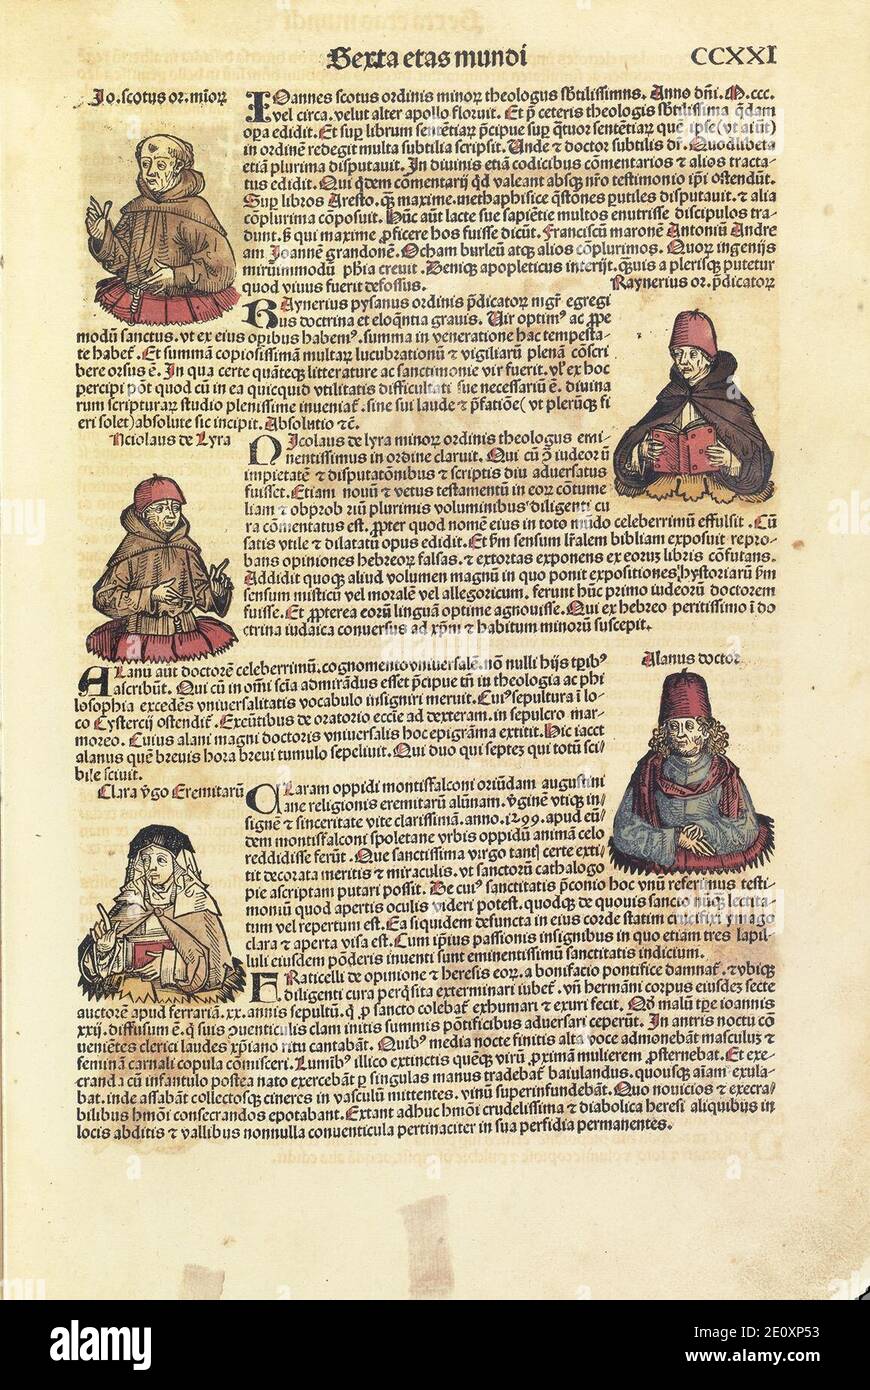 Sexta etas mundi CCXXI
Jo. scotus or. minoꝝ
IOannes scotus ordinis minoꝝ theologus sbtilissimns. Anno dni. M. ccc.
vel circa. velut alter apollo floruit. Et p̄ ceteris theologis sbtilissima qdam
opa edidit. Et sup librum sentētiaꝝ p̄cipue sup qtuor sentētiaꝝ quē ipse (vt aiūt)
in ordinē redegit multa subtilia scripsit. Unde ⁊ doctor subtilis dī. Quodlibeta
etiā plurima disputauit. In diuinis etiā codicibus cōmentarios ⁊ alios tracta-
tus edidit. Qui qdem cōmentarij qd valeant absqꝫ nrō testimonio ipī ostendūt.
Sup libros Aresto. qꝫ maxime. methaphisice qstōnes putiles disputauit. ⁊ alia
cōplurima cōposuit. Hūc aūt lacte sue sapiētie multos enutrisse discipulos tra-
dunt. s̄ qui maxime pficere hos fuisse dicūt. Franciscū maronē Antoniū Andre
am Joannē grandonē. Ocham burleū atqꝫ alios cōplurimos. Quoꝝ ingenijs
mirūimmodū phia creuit. Deniqꝫ apopleticus interijt. quis a plerisqꝫ putetur
quod viuus fuerit defossus.
Raynerius or. pdicatoꝝ
RAynerius pysanus ordinis pdicatoꝝ mgr egregi
us doctrina et eloqntia grauis. Uir optimꝰ ac ppe
modū sanctus. vt ex eius opibus habemꝰ. summa in veneratione hac tempesta-
te habet. Et summā copiosissimā multaꝝ lucubrationū ⁊ vigiliarū plenā cōscri
bere orsus ē. In qua certe quāteqꝫ litterature ac sanctimonie vir fuerit. vl ex hoc
percipi pōt quod cū in ea quicquid vtilitatis difficultati sue necessariū ē. diuina
rum scripturaꝝ studio plenissime inueniat. sine sui laude ⁊ pfatiōe (vt pleruqꝫ fi
eri solet) absolute sic incipit. Absolutio ⁊c.
Nciolaus de Lyra
NIcolaus de lyra minoꝝ ordinis theologus emi-
nentissimus in ordine claruit. Qui cū p iudeoꝝ
impietatē ⁊ disputatōnibus ⁊ scriptis diu aduersatus
fuisset. Etiam nouū ⁊ vetus testamentū in eoꝝ cōtume
liam ⁊ obprob riū plurimis voluminibus diligenti cu
ra cōmentatus est. ppter quod nomē eius in toto mūdo celeberrimū effulsit. Cū
satis vtile ⁊ dilatatū opus edidit. Et sm sensum lralem bibliam exposuit repro-
bans opiniones hebreoꝝ falsas. ⁊ extortas exponens ex eorum libris cōfutans.
Addidit quoqꝫ aliud volumen magnū in quo ponit expositiones hystoriarū sm
sensum misticū vel morale vel allegoricum. ferunt hūc primo iudeorū doctorem
fuisse. Et ppterea eorū linguam optime agnouisse. Qui ex hebreo peritissimo ī do
ctrina iudaica conuersus ad xpm ⁊ habitum minorū suscepit.
Alanus doctor
ALanū aūt doctorē celeberrimū. cognomento vniuersalē. nōnulli hijs tpibꝰ
ascribūt. Qui cū in omī scīa admirādus esset pcipue tn in theologia ac phi
losophia excedēs vniuersalitatis vocabulo insigniri meruit. Cuiꝰ sepultura ī lo-
co Cystercij ostendit. Exeūtibus de oratorio eccīe ad dexteram. in sepulcro mar-
moreo. Cuius alani magni doctoris vniuersalis hoc epigrāma extitit. Hic iacet
alanus quē breuis hora breui tumulo sepeliuit. Qui duo qui septeꝫ qui totū sci-
bile sciuit.
Clara vgo Eremitarū
CLaram oppidi montisfalconi oriūdam augustini
ane religionis eremitarū alūnam. vginē vtiqꝫ in-
signē ⁊ sinceritate vite clarissimā. anno. 1299. apud eun
dem montisfalconi spoletane vrbis oppidū animā celo
reddidisse ferūt. Que sanctissima virgo tantꝭ certe exti-
tit decorata meritis ⁊ miraculis. vt sanctorū cathalogo
pie ascriptam putari possit. De cuiꝰ sanctitatis pconio hoc vnū referimus testi-
moniū quod apertis oculis videri potest. quodqꝫ de quouis sancto nūqꝫ lectita-
tum vel repertum est. Ea siquidem defuncta in eius corde statim crucifixi ymago
clara ⁊ aperta visa est. Cum ipius passionis insignibus in quo etiam tres lapil-
luli eiusdem pōderis inuenti sunt eminentissimū sanctitatis indicium.
FRaticelli de opinione ⁊ heresis eoꝝ. a bonifacio pontifice damnat. ⁊ vbiqꝫ
diligenti cura perqsita exterminari iubet. vn hermanī corpus eiusdeꝫ secte
auctorē apud ferrariā. xx. annis sepultū. q p sancto colebat exhumari ⁊ exuri fecit. Qd malū tpe ioannis
xxij. diffusum ē. q suis ꝯuenticulis clam initis summis pōtificibus aduersari ceperūt. In antris noctu cō
uenientes clerici laudes xpiano ritu cantabāt. Quibꝰ media nocte finitis alta voce admonebāt masculuꝫ ⁊
feminam carnali copula cōmisceri. Luminibꝰ illico extinctis quēqꝫ virū proximā mulierem psternebat. Et exe-
cranda cū infantulo postea nato exercebāt p singulas manus tradebāt baiulandus. quousqꝫ aīam exula-
bat. inde assabāt collectosqꝫ cineres in vasculū mittentes. vinū superinfundebāt. Quo nouicios ⁊ execra-
bilibus hmōi consecrandos epotabant. Extant adhuc hmōi crudelissima ⁊ diabolica heresi aliquibus in
locis abditis ⁊ vallibus nonnulla conuenticula pertinaciter in sua perfidia permanentes.
alamy
Image ID: 2E0XP53
www.alamy.com